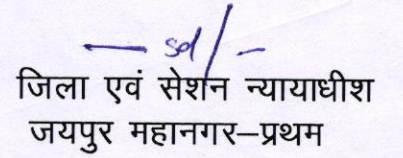 — sd/-
जिला एवं सेशन न्यायाधीश
जयपुर महानगर–प्रथम